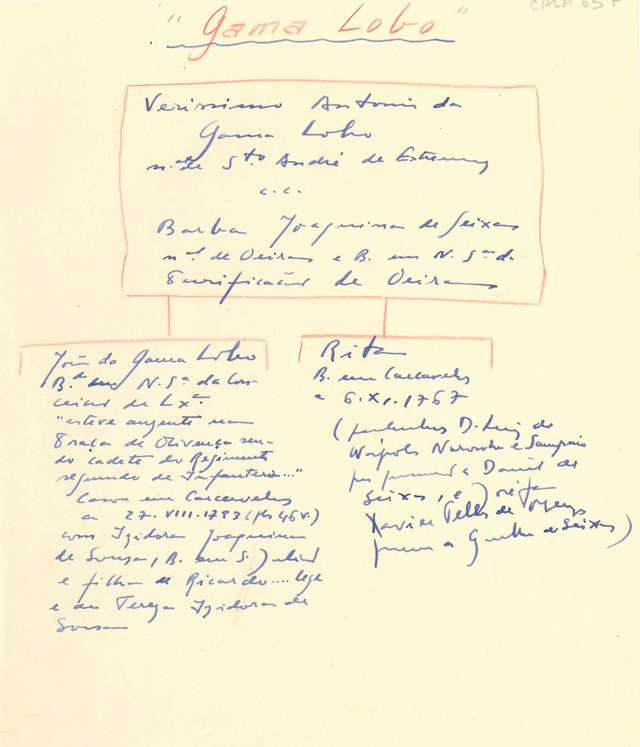 "Gama Lobo"
Verissimo Antonio da
Gama Lobo
n.al de S.to André de Estremoz
c.c.
Barba Joaquina de Seixas
n.al de Oeiras e B. em N. S.ra da
Purificação de Oeiras
João da Gama Lobo
B.do em N. S.ra da Con
ceição de Lx.a
"esteve ausente na
Praça de Olivença sen-
do cadete do Regimento
segundo de Infantaria..."
Casou em Carcavelos
a 27.VIII.1783 (fls 46 v.)
com Izidora Joaquina
de Sousa, B. em S. Julião
e filha de Ricardo .... lege
e de Tereza Izidora de
Sousa
Rita
B. em Carcavelos
a 6.XI.1767
(padrinhos D. Luiz de
Nápoles Noronha e
por procuração a Daniel de
Seixas, e
Xavier Telles de
Seixas)